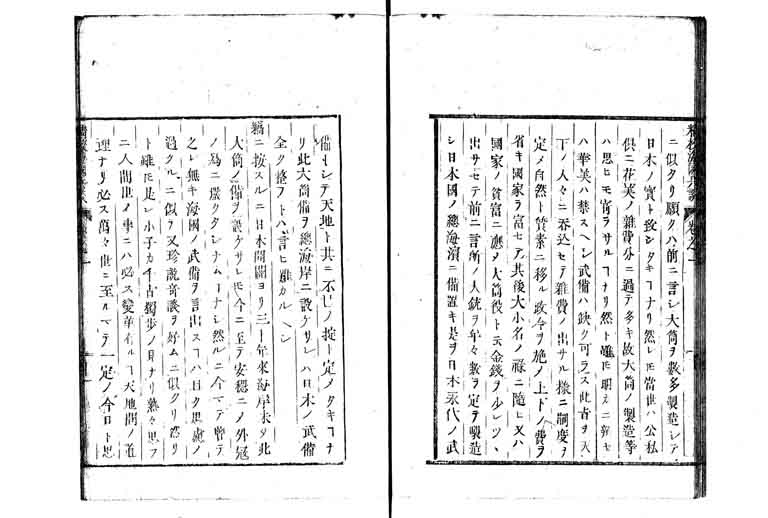 ニ似タリ願クハ前ニ言シ大筒ヲ数多製造シテ
日本ノ實ト致シタキ𪜈ナリ然レ𪜈當世ハ公私
倶ニ花美ノ雑費分ニ過テ多キ故大筒ノ製造等
ハ思ヒモ寄ラサル𪜈ナリ然ト雖𪜈明ニ
ハ華美ハ禁スヘシ武備ハ缺ク可ラス此旨ヲ天
下ノ人々ニ呑込セテ雑費ノ出サル様ニ制度ヲ
定メ自然ト質素ニ移ル政令ヲ施メ上下ノ費ヲ
省キ國家ヲ富セテ其後大小名ノ禄ニ隨ヒ又ハ
國家ノ貧富ニ應メ大筒役ト云金錢ヲ少シツヽ
出サセテ前ニ言所ノ大銃ヲ年々数ヲ定テ製造
シ日本國ノ總海濱ニ備置キ是ヲ日本永代ノ武
備トシテ天地ト共ニ不ノ掟ト定メタキ𪜈ナ
リ此大筒備ヲ總海岸ニ設ケサレハ日本ノ武備
全ク整フトハ言ヒ難カルヘシ
竊ニ按スルニ日本開闢ヨリ三千年來海岸未タ此
大筒ノ備ヲ設ケサレ𪜈今ニ至テ安穏ニメ外冦
ノ為ニサレタルナシ然ルニ今マテ曽テ
之レ無キ海國ノ武備ヲ言出スハ思慮ノ
過タルニ似タリ又珍説奇談ヲ好ムニ似タリ然リ
ト雖𪜈是レ小子カ千古獨歩ノ目ナリ熟々思フ
ニ人間世ノ事ニハ必ス變革アル𪜈天地間ノ道
理ナリ必ス萬々世ニ至ルマテ一定ノ今日ト思